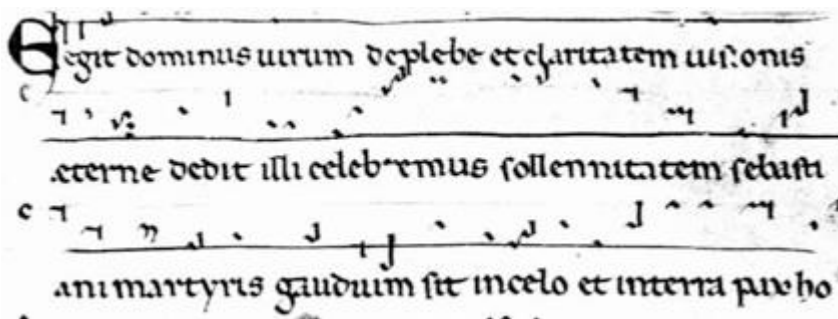 Elegit dominus uirum deplebe et claritatem uisionis
æterne dedit illi celebremus sollennitatem sebasti
ani martyris gaudium sit incelo et interra pax ho